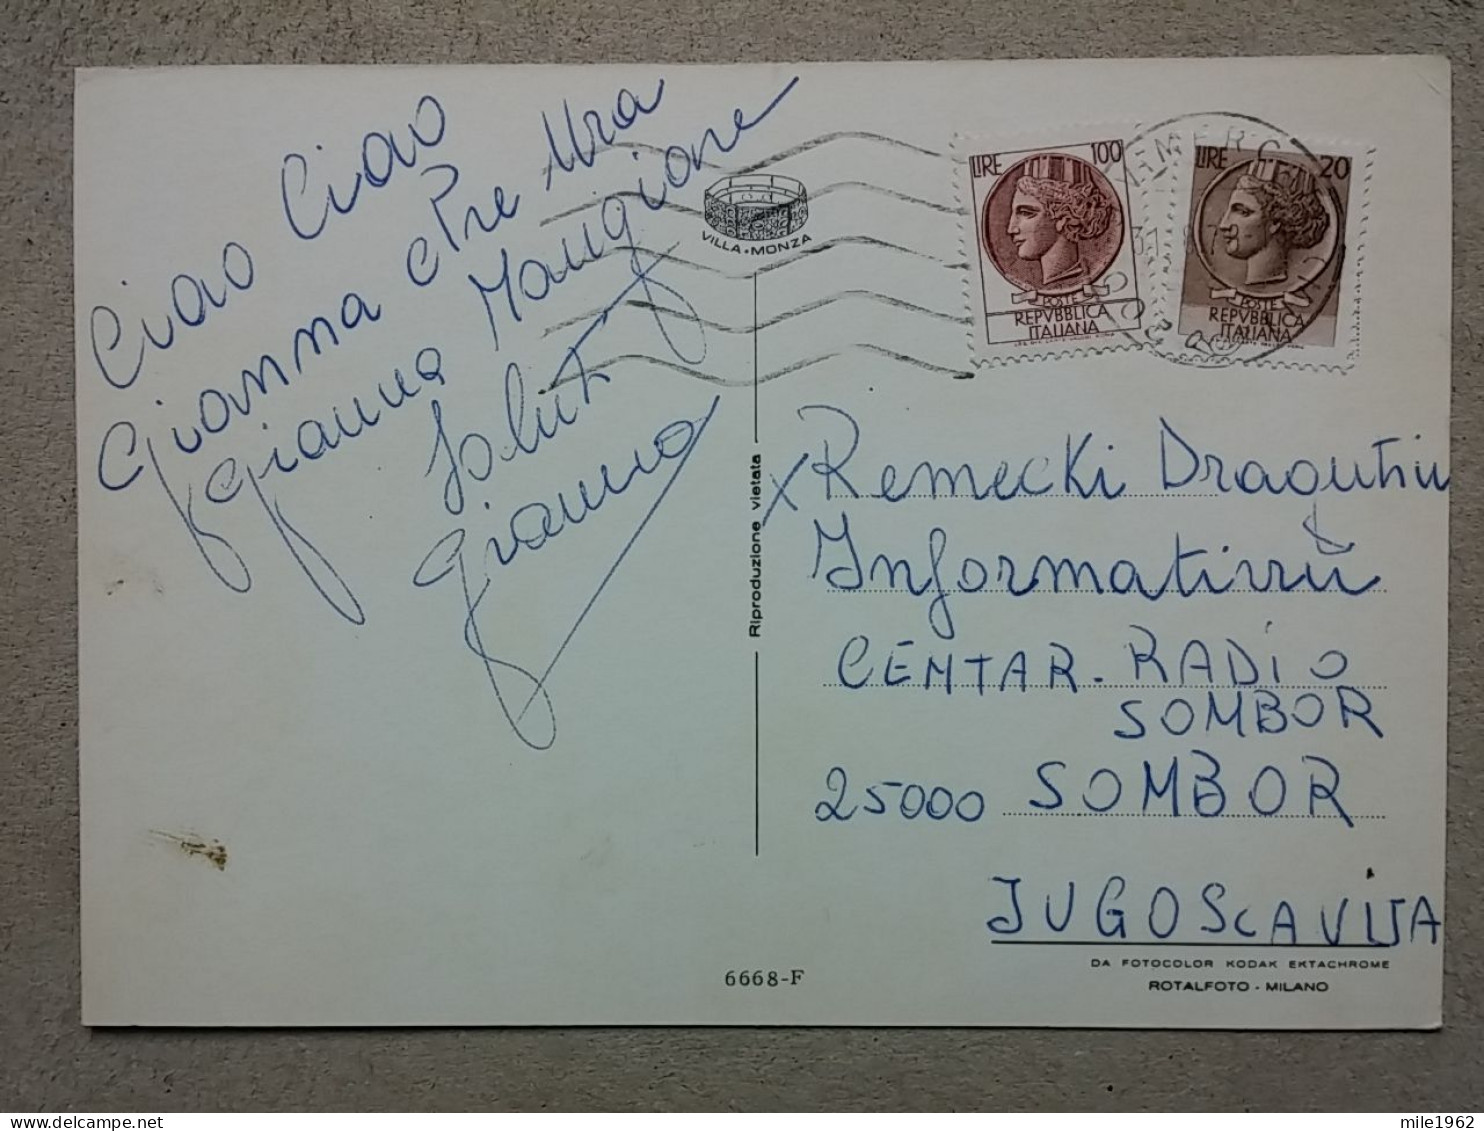 Ciao Ciao
Gianna e Pre Mra
Gianna Mangione
Saluti
Gianna
VILLA • MONZA
LIRE 100
POSTE
REPVBBLICA
ITALIANA
LIRE 20
POSTE
REPVBBLICA
ITALIANA
Riproduzione vietata
Remecki Dragutin
Informativni
CENTAR. RADIO
SOMBOR
25000 SOMBOR
JUGOSLAVIJA
DA FOTOCOLOR KODAK EKTACHROME
ROTALFOTO - MILANO
6668-F
mile1962